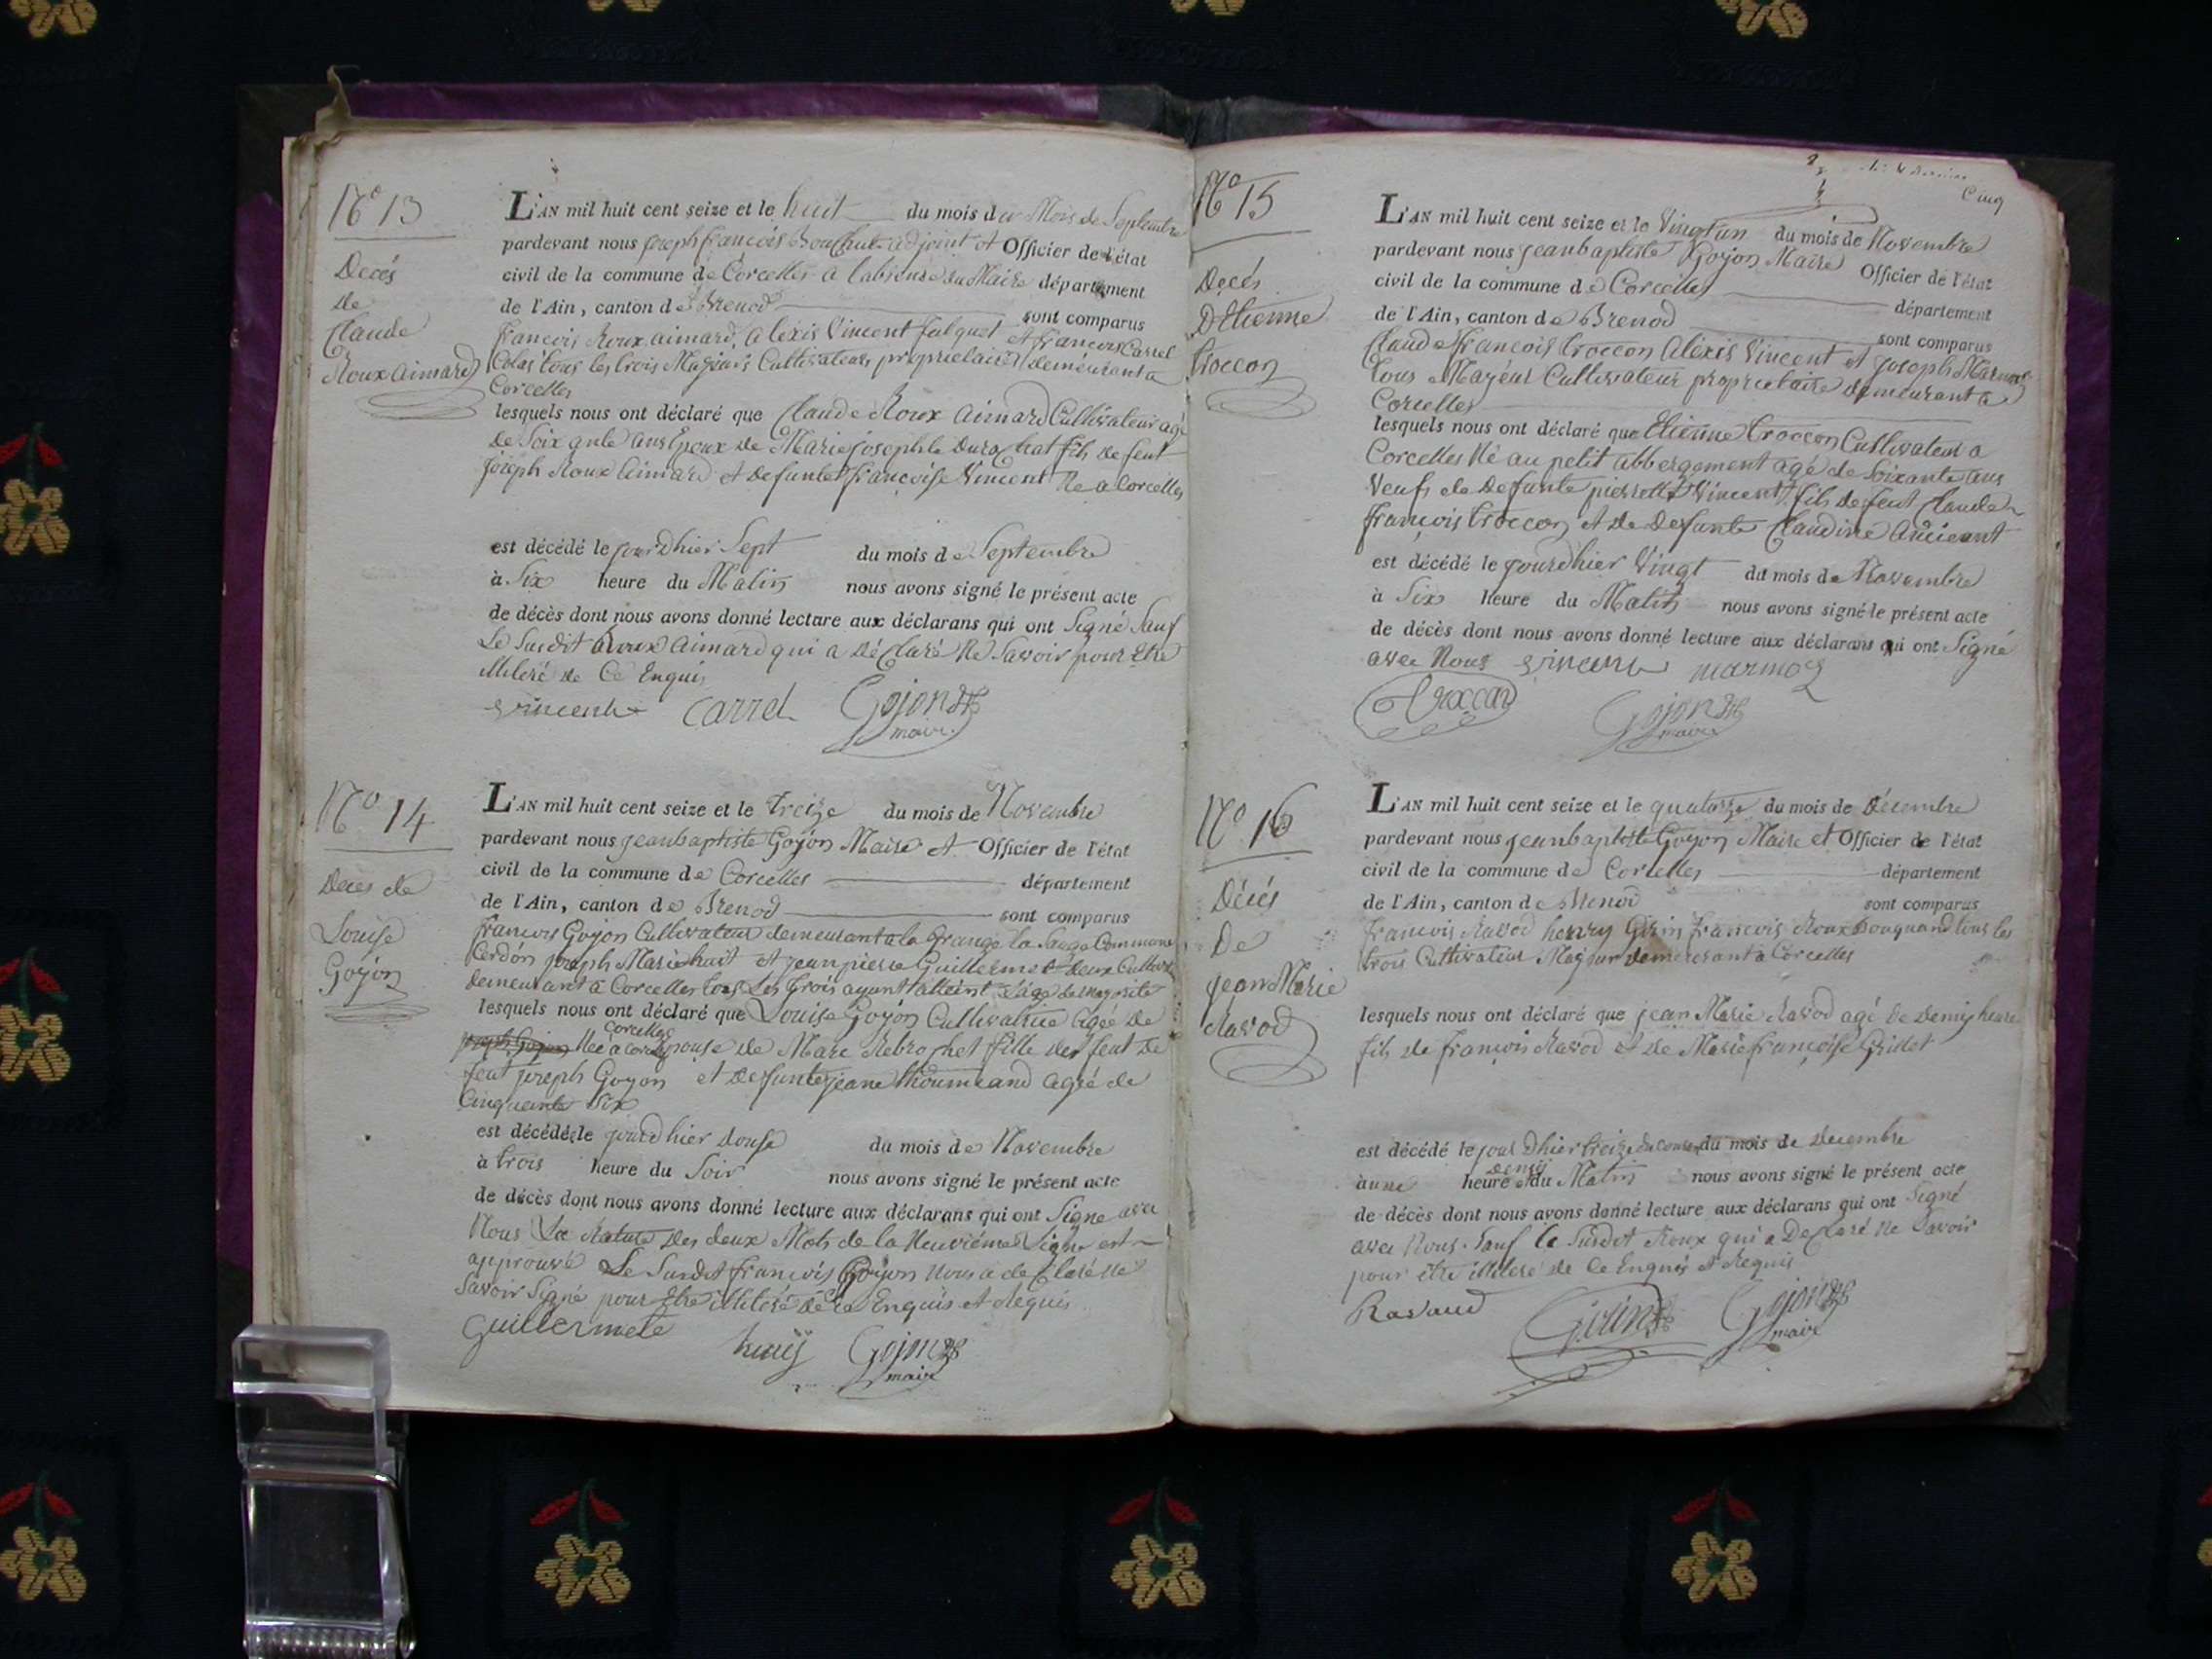 N° 13
Decés
de
Claude
Roux aimard
L'AN mil huit cent seize et le huit du mois de Mois de Septembre
pardevant nous joseph françois adjoint et Officier de l'état
civil de la commune de Corcelles a l'absense du Maire département
de l'Ain, canton de Brenod sont comparus
françois Roux aimard, alexis Vincent fulquet et françois Carrel
tous les trois Majeurs Cultivateurs proprietaires demeurant a
Corcelles
lesquels nous ont déclaré que Claude Roux aimard Cultivateur agé
de Soixante ans Epoux de Marie josephte Durochat fils de feut
joseph Roux aimard et defunte françoise Vincent Ne a Corcelles
est décédé le jourdhier Sept du mois de Septembre
à Six heure du Matin nous avons signé le présent acte
de décès dont nous avons donné lecture aux déclarans qui ont Signé Sauf
Le Susdit Roux aimard qui a déclaré Ne Savoir pour Etre
illiteré de Ce Enquis
vincent Carrel Gojon
maire
N° 14
Deces de
Louise
Goyon
L'AN mil huit cent seize et le treize du mois de Novembre
pardevant nous jeanbaptiste Goyon Maire et Officier de l'état
civil de la commune de Corcelles département
de l'Ain, canton de Brenod sont comparus
françois Goyon Cultivateur demeurant a la Grange la Sauge Commune
Cerdon joseph Marie huit et jean pierre Guillermet deux Cultivat
demeurant a Corcelles tous Les trois ayant atteint l'age de majorité
lesquels nous ont déclaré que Louise Goyon Cultivatrice agée de
Corcelles
joseph Goyon Née a epouse de Marc Rebrochet fille de feut de
feut joseph Goyon et defunte jeane agée de
Cinquante Six
est décédé le jourdhier douse du mois de Novembre
à trois heure du Soir nous avons signé le présent acte
de décès dont nous avons donné lecture aux déclarans qui ont Signe avec
Nous La Rature des deux Mots de la Neuviéme Ligne est
approuvé Le Susdit françois Goyon Nous a declaré ne
Savoir Signé pour Etre illiteré de ce Enquis et Requis
Guillermete huit Gojon
maire
Cinq
N° 15
Decés
D'Etienne
Troccon
L'AN mil huit cent seize et le Vingt un du mois de Novembre
pardevant nous jeanbaptiste Goyon Maire Officier de l'état
civil de la commune de Corcelles département
de l'Ain, canton de Brenod sont comparus
Claude françois Troccon Alexis Vincent et joseph Marmoz
tous Mayeur Cultivateur proprietaire demeurant a
Corcelles
lesquels nous ont déclaré que Etienne Troccon Cultivateur a
Corcelles Né au petit abbergement agé de Soixante ans
Veuf de defunte pierrette Vincent fils de feut Claude
françois Troccon et de defunte Claudine Ancient
est décédé le jourdhier Vingt du mois de Novembre
à Six heure du Matin nous avons signé le présent acte
de décès dont nous avons donné lecture aux déclarans qui ont Signé
avec Nous vincent marmoz
Troccon Gojon
maire
N° 16
Décés
De
jean Marie
Ravod
L'AN mil huit cent seize et le quatorze du mois de Décembre
pardevant nous jeanbaptiste Goyon Maire et Officier de l'état
civil de la commune de Corcelles département
de l'Ain, canton de Brenod sont comparus
françois Ravod henry Girin françois Roux Bouquand tous les
trois Cultivateur Majeur demeurant a Corcelles
lesquels nous ont déclaré que jean Marie Ravod agé de demy heure
fils de françois Ravod et de Marie françoise Grillet
est décédé le jour Dhier treize du mois de Decembre
demy
à une heure et du Matin nous avons signé le présent acte
de décès dont nous avons donné lecture aux déclarans qui ont Signé
avec Nous Sauf le Susdit Roux qui a Declaré Ne Savoir
pour être illiteré de Ce Enquis et Requis
Ravaud Girin Gojon
maire